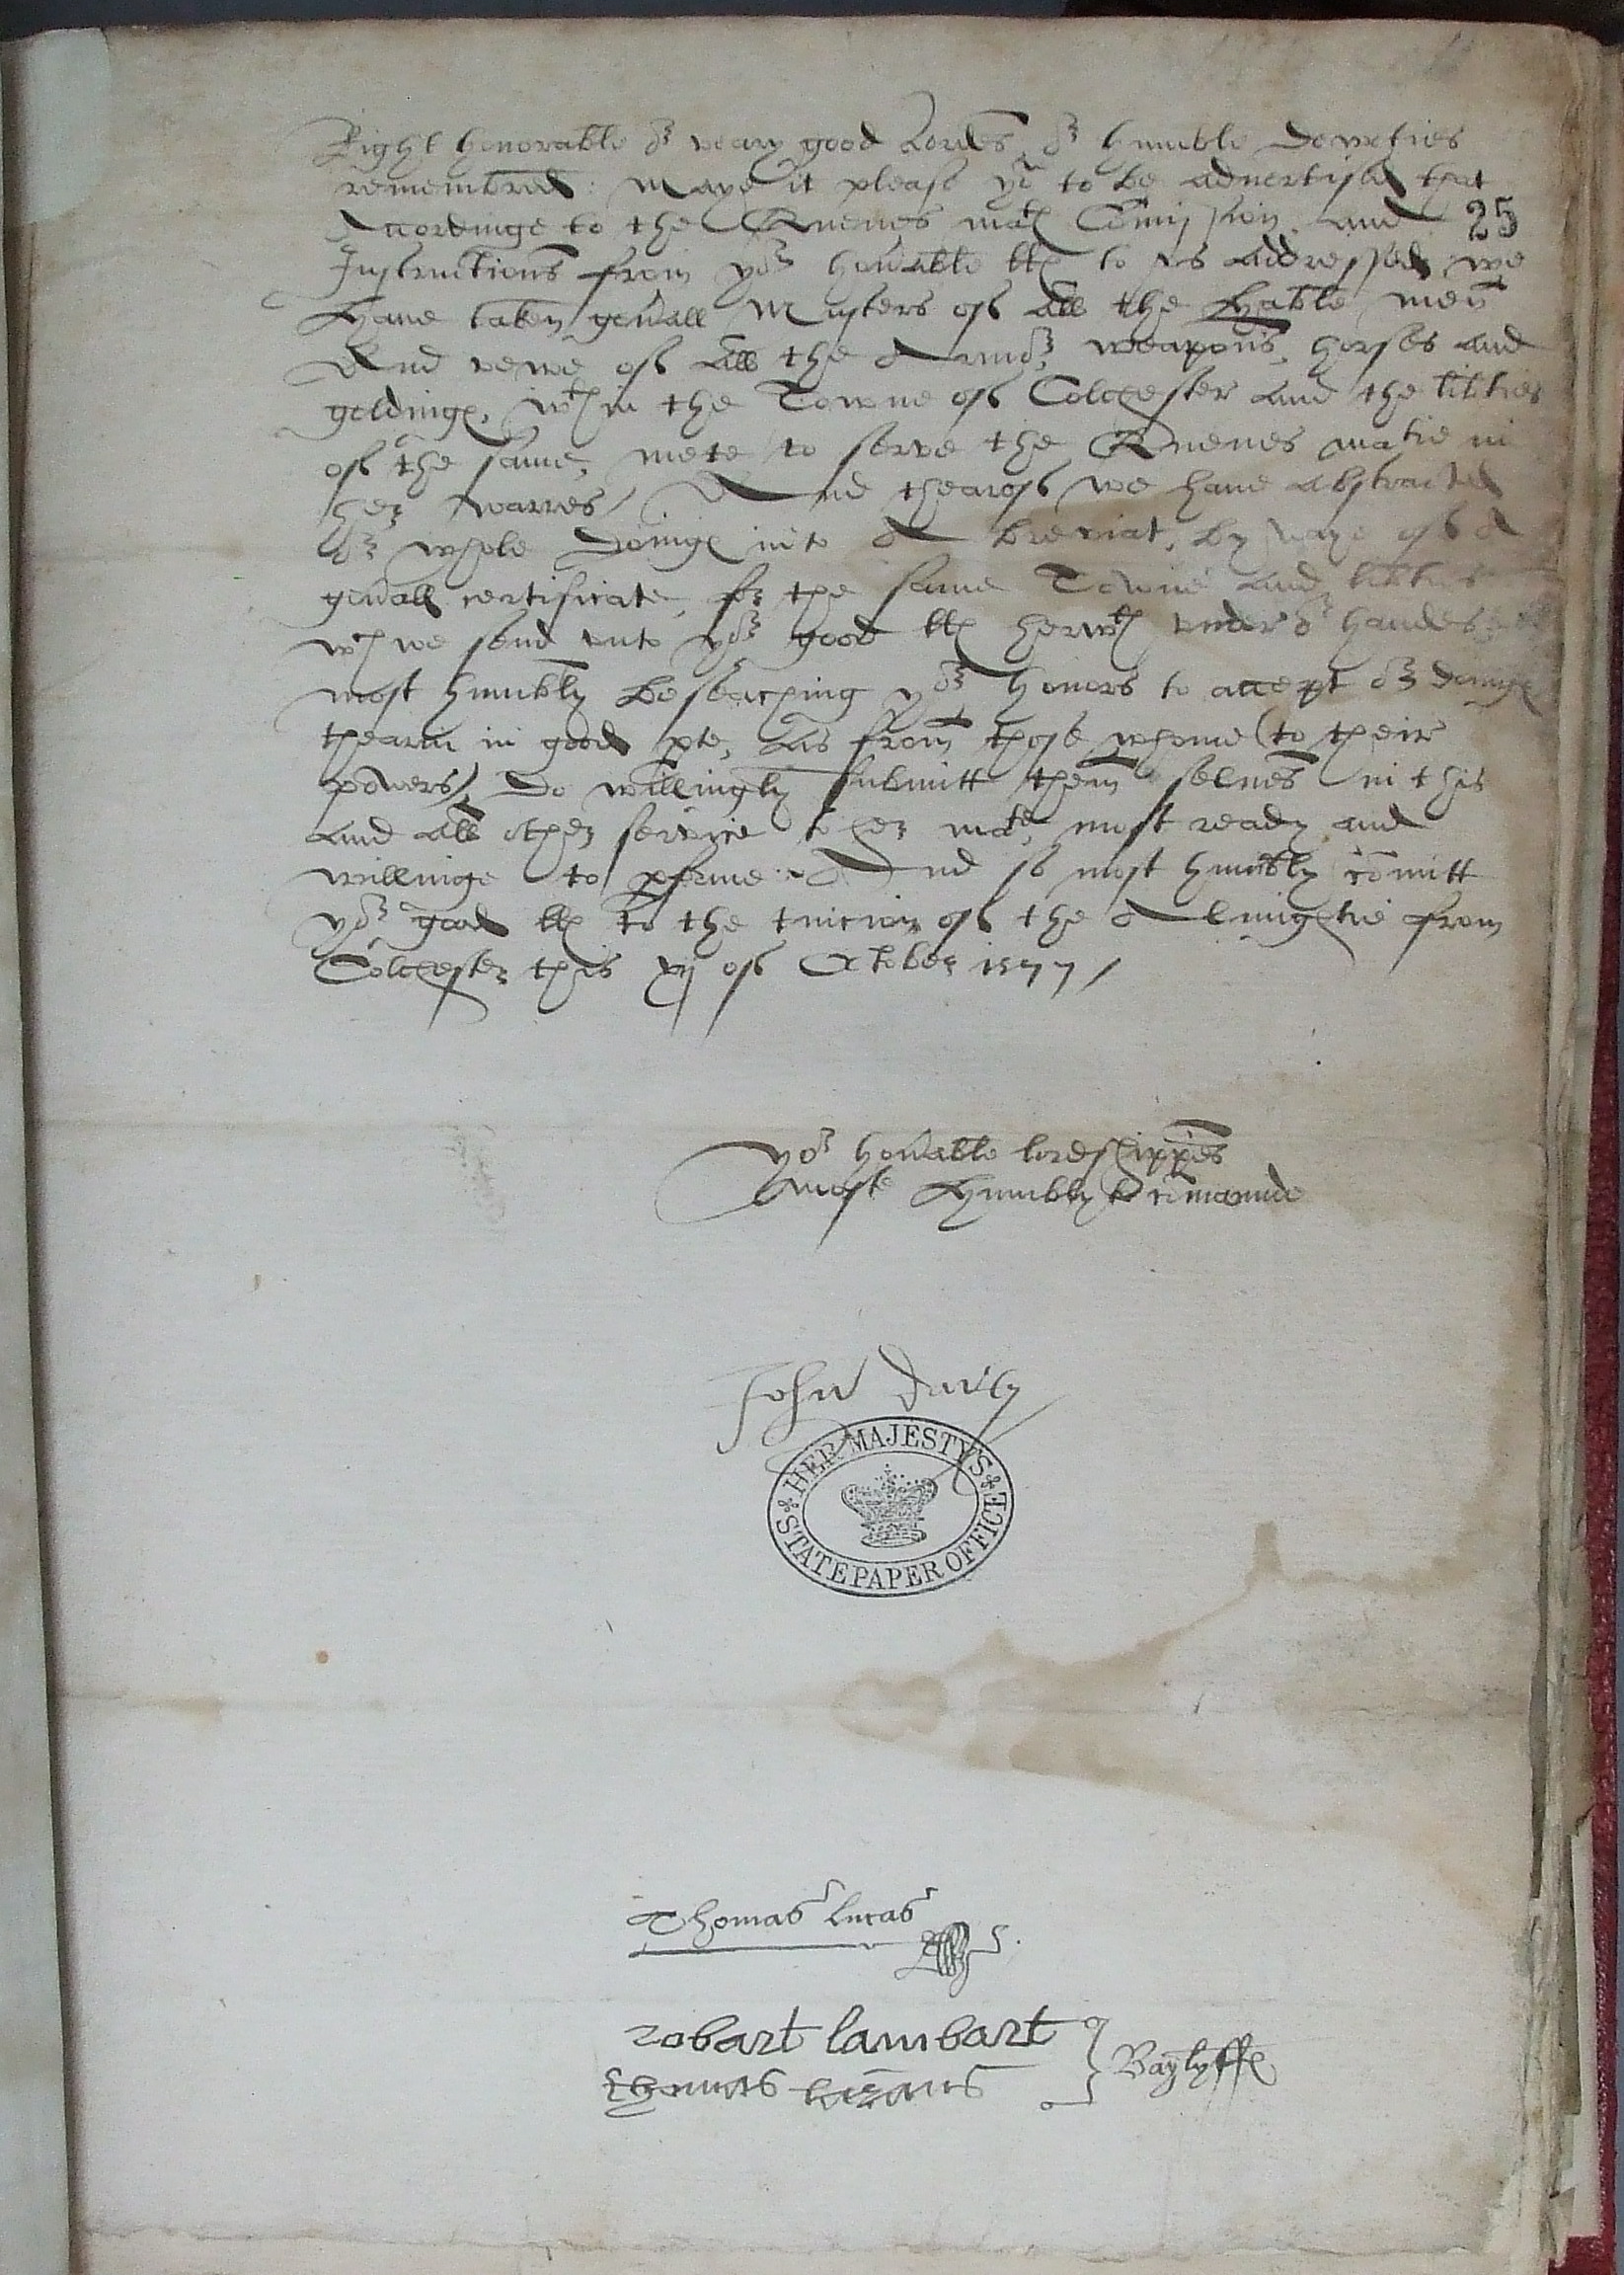 Right honorable or veary good Lordes, or humble dewties
remembred: Maye it please you to be advertised that
Accordinge to the Quenes matꝭ Comission and
25
Instructions from yor honable llꝭ to us addressed, we
Have taken genall Musters of all the Hable men
And vewe of all the Armor, weapons, horses and
geldingꝭ, wthin the Towne of Colchester and the libties
of the same, mete to serve the Quenes matie in
her warres / And thearof we have abstracted
or whole doingꝭ into A breviat, by waye of A
genall certificate, for the same Towne and libties
wch we send unto yor good llꝭ herwth under or handes
most humbly beseaching yor honors to accept or doingꝭ
thearin in good pte, as from those whome (to their
powers) do willingly submitt them selves in this
and all other service to her matie, most ready and
willinge to pforme. And so most humbly comitt
yor good llꝭ to the tuicion of the Almightie from
Colchester this xij of October 1577 /
yor honable lordshippes
moste Humbly to comaunde
John Darcy
HER MAJESTY'S
STATE PAPER OFFICE
Thomas Lucas
robart lambart
thomas
Baylyffꝭ